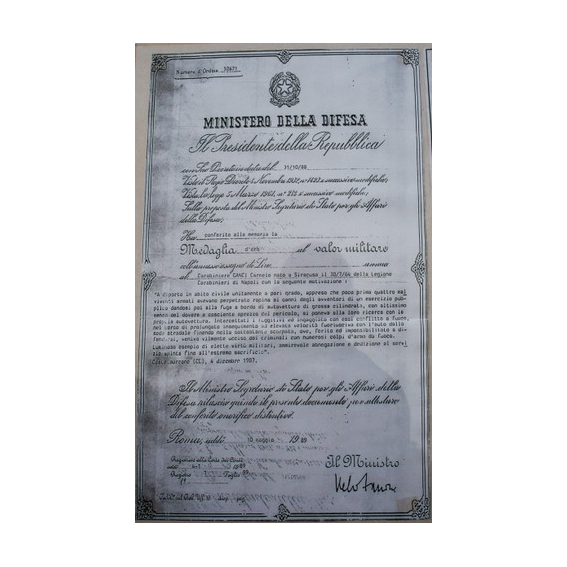 Numero d'Ordine 10471
MINISTERO DELLA DIFESA
Il Presidente della Repubblica
con Suo Decreto in data del 31/10/88
Visto il Regio Decreto 4 Novembre 1932, n° 1423 e successive modifiche;
Vista la legge 5 Marzo 1961, n° 212 e successive modifiche;
Sulla proposta del Ministro Segretario di Stato per gli Affari
della Difesa;
Ha conferito alla memoria la
Medaglia d'oro al valor militare
coll'annesso assegno di Lire annue
al Carabiniere GANCI Carmelo nato a Siracusa il 30/7/64 della Legione
Carabinieri di Napoli con la seguente motivazione:
"A diporto in abito civile unitamente a pari grado, appreso che poco prima quattro mal
viventi armati avevano perpetrato rapina ai danni degli avventori di un esercizio pub
blico dandosi poi alla fuga a bordo di autovettura di grossa cilindrata, con altissimo
senso del dovere e cosciente sprezzo del pericolo, si poneva alla loro ricerca con la
propria autovettura. Intercettati i fuggitivi ed ingaggiato con essi conflitto a fuoco,
nel corso di prolungato inseguimento ad elevata velocità fuoriusciva con l'auto dalla
sede stradale finendo nella sottostante scarpata, ove, ferito ed impossibilitato a di
fendersi, veniva vilmente ucciso dai criminali con numerosi colpi d'arma da fuoco.
Luminoso esempio di elette virtù militari, ammirevole abnegazione e dedizione al ser
vizio spinta fino all'estremo sacrificio".
(CE), 4 dicembre 1987.
Il Ministro Segretario di Stato per gli Affari della
Difesa rilascia quindi il presente documento per attestare
del conferito onorifico distintivo.
Roma, addì 10 maggio 1989
Registrato alla Corte dei Conti
addì 1989
Registro Foglio
Il Ministro